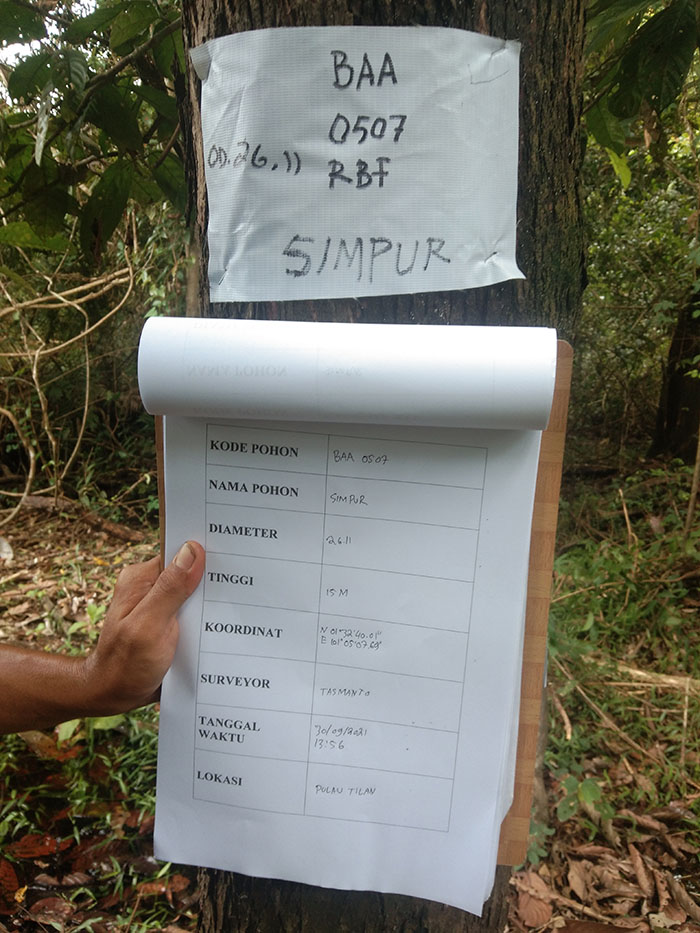 BAA
0507
OD.26.11
RBF
SIMPUR
KODE POHON BAA 0507
NAMA POHON SIMPUR
DIAMETER 26.11
TINGGI 15 M
KOORDINAT N 01°32'40.01"
E 101°05'07.69"
SURVEYOR TASMANTO
TANGGAL 30/09/2021
WAKTU 13:56
LOKASI PULAU TILAN